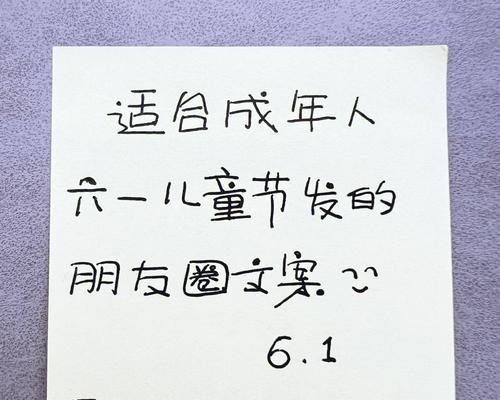 适合成年人
六一儿童节发的
朋友圈文案
6.1